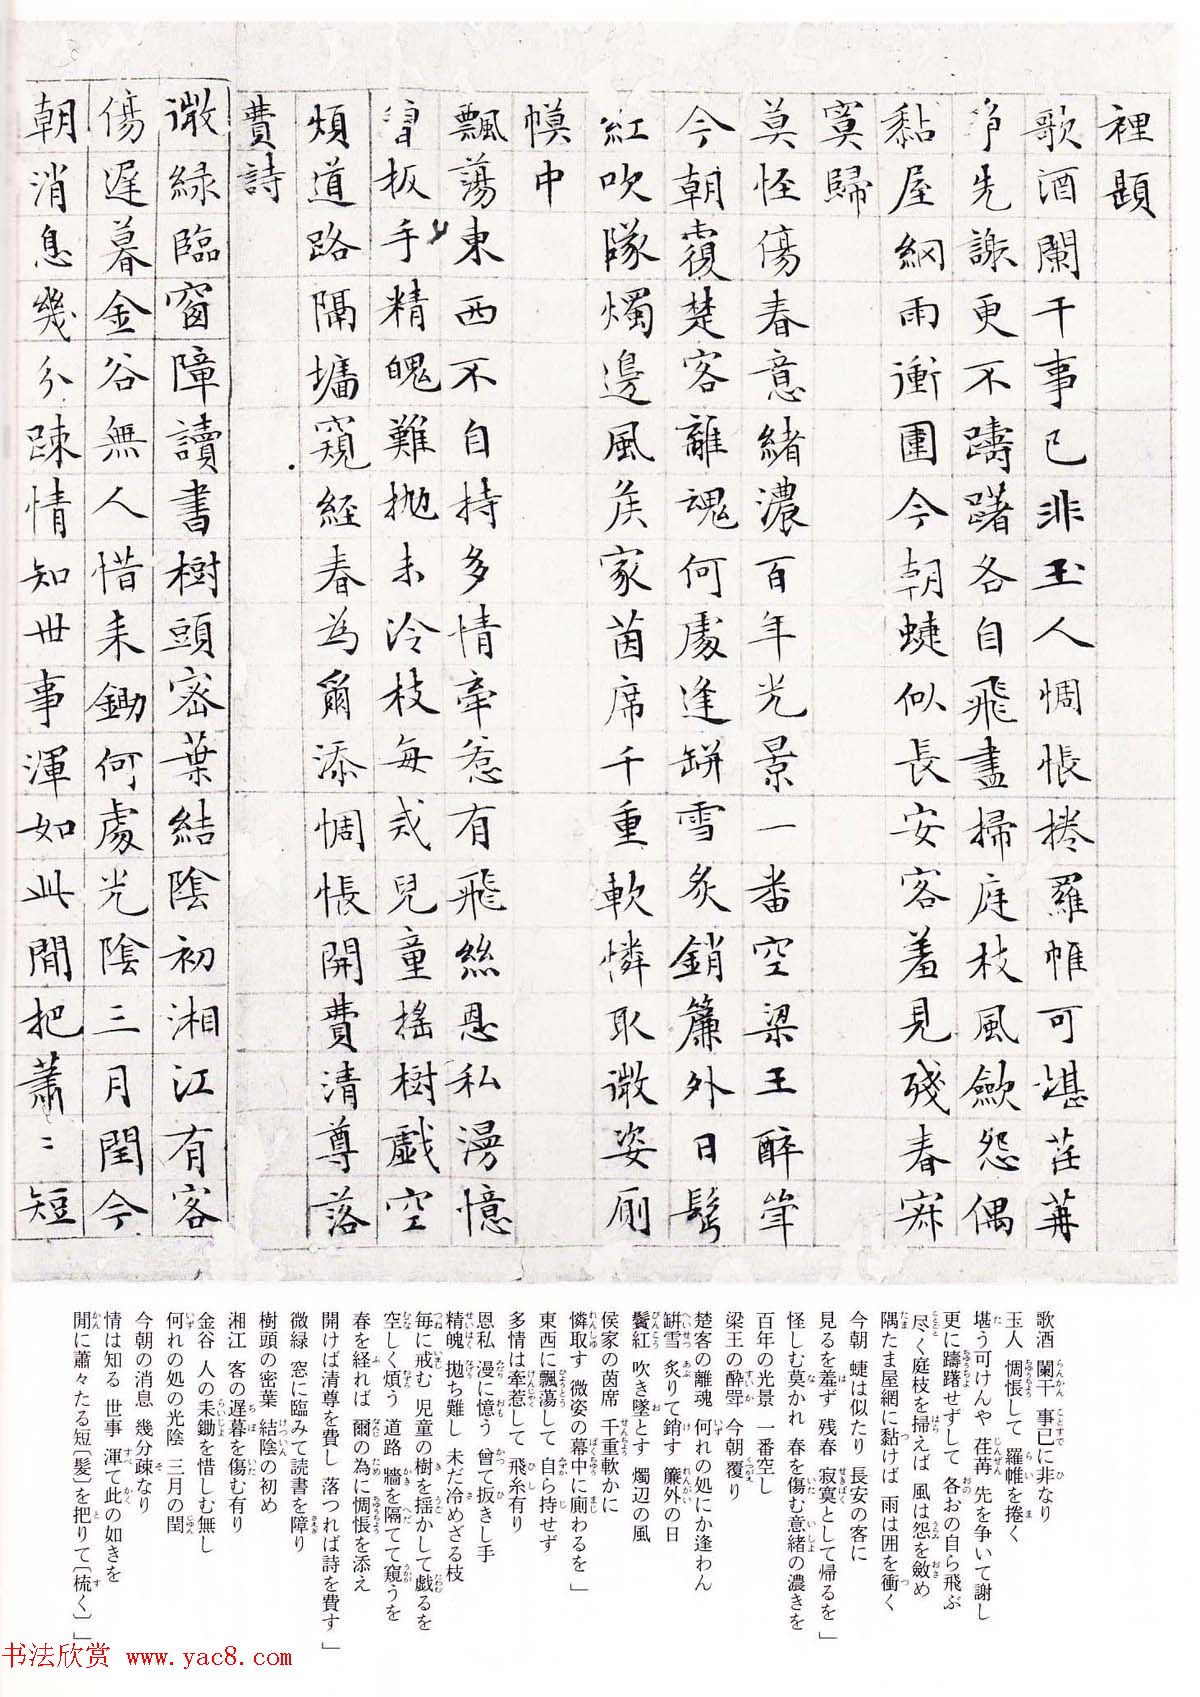 裡題
歌酒闌干事已非玉人惆悵捲羅帷可堪荏苒
爭先謝更不躊躇各自飛盡掃庭枝風歛怨偶
黏屋網雨衝圍今朝蜨似長安客羞見殘春寂
寞歸
莫怪傷春意緒濃百年光景一番空梁王醉筆
今朝覆楚客離魂何處逢缾雪炙銷簾外日鬂
紅吹隊燭邊風矦家茵席千重軟憐取微姿廁
幙中
飄蕩東西不自持多情牽惹有飛絲恩私漫憶
曾扳手精魄難拋未冷枝每戒兒童搖樹戲空
煩道路隔墻窺經春為爾添惆悵開費清尊落
費詩
微綠臨窗障讀書樹頭密葉結陰初湘江有客
傷遲暮金谷無人惜耒鋤何處光陰三月閏今
朝消息幾分疎情知世事渾如此閒把蕭〻短
歌酒 闌干 事已に非なり
玉人 惆悵して 羅帷を捲く
堪う可けんや 荏苒 先を争いて謝し
更に躊躇せずして 各おの自ら飛ぶ
尽く庭枝を掃えば 風は怨を斂め
隅たま屋網に黏けば 雨は囲を衝く
今朝 蜨は似たり 長安の客に
見るを羞ず 残春 寂寞として帰るを」
怪しむ莫かれ 春を傷む意緒の濃きを
百年の光景 一番空し
梁王の酔斝 今朝覆り
楚客の離魂 何れの処にか逢わん
缾雪 炙りて銷す 簾外の日
鬢紅 吹き墜とす 燭辺の風
侯家の茵席 千重軟かに
憐取す 微姿の幕中に廁わるを」
東西に飄蕩して 自ら持せず
多情は牽惹して 飛糸有り
恩私 漫に憶う 曾て扳きし手
精魄 拋ち難し 未だ冷めざる枝
毎に戒む 児童の樹を揺かして戯るを
空しく煩う 道路 牆を隔てて窺うを
春を経れば 爾の為に惆悵を添え
開けば清尊を費し 落つれば詩を費す」
微緑 窓に臨みて読書を障り
樹頭の密葉 結陰の初め
湘江 客の遅暮を傷む有り
金谷 人の耒鋤を惜しむ無し
何れの処の光陰 三月の閏
今朝の消息 幾分疎なり
情は知る 世事 渾て此の如きを
閒に蕭々たる短〔髪〕を把りて〔梳く〕」
书法欣赏 www.yac8.com